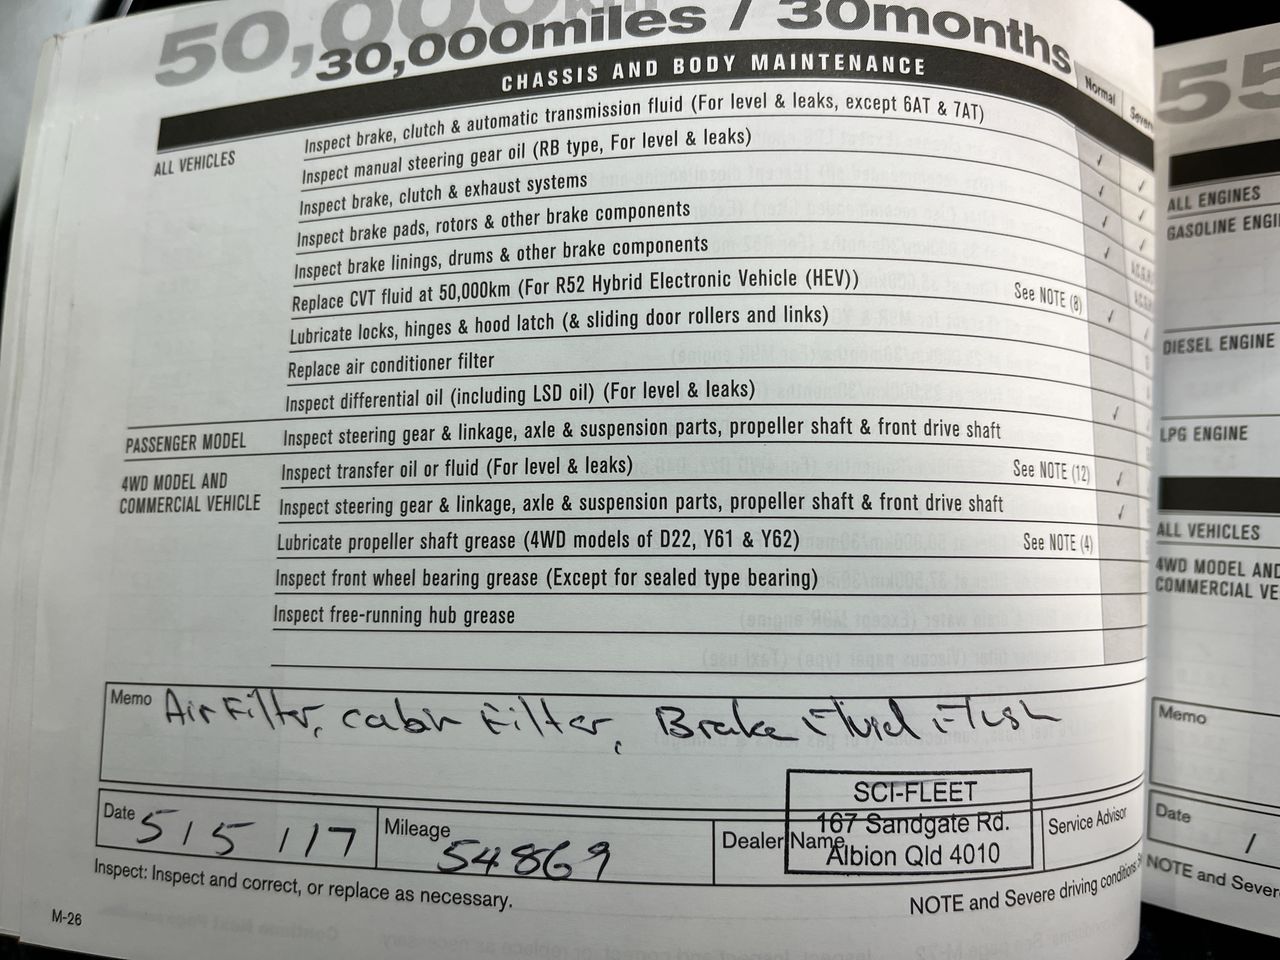 50,000km
30,000miles / 30months
CHASSIS AND BODY MAINTENANCE
Normal
Severe
ALL VEHICLES
Inspect brake, clutch & automatic transmission fluid (For level & leaks, except 6AT & 7AT)
Inspect manual steering gear oil (RB type, For level & leaks)
Inspect brake, clutch & exhaust systems
Inspect brake pads, rotors & other brake components
Inspect brake linings, drums & other brake components
Replace CVT fluid at 50,000km (For R52 Hybrid Electronic Vehicle (HEV)) See NOTE (8)
Lubricate locks, hinges & hood latch (& sliding door rollers and links)
Replace air conditioner filter
Inspect differential oil (including LSD oil) (For level & leaks)
PASSENGER MODEL Inspect steering gear & linkage, axle & suspension parts, propeller shaft & front drive shaft
4WD MODEL AND
COMMERCIAL VEHICLE
Inspect transfer oil or fluid (For level & leaks) See NOTE (12)
Inspect steering gear & linkage, axle & suspension parts, propeller shaft & front drive shaft
Lubricate propeller shaft grease (4WD models of D22, Y61 & Y62) See NOTE (4)
Inspect front wheel bearing grease (Except for sealed type bearing)
Inspect free-running hub grease
Memo Air Filter, cabin Filter, Brake Fluid Flush
Date 5 / 5 / 17
Mileage 54869
Dealer Name
SCI-FLEET
167 Sandgate Rd.
Albion Qld 4010
Service Advisor
Inspect: Inspect and correct, or replace as necessary.
NOTE and Severe driving conditions:
M-26
55
ALL ENGINES
GASOLINE ENGI
DIESEL ENGINE
LPG ENGINE
ALL VEHICLES
4WD MODEL AND
COMMERCIAL VE
Memo
Date /
NOTE and Sever